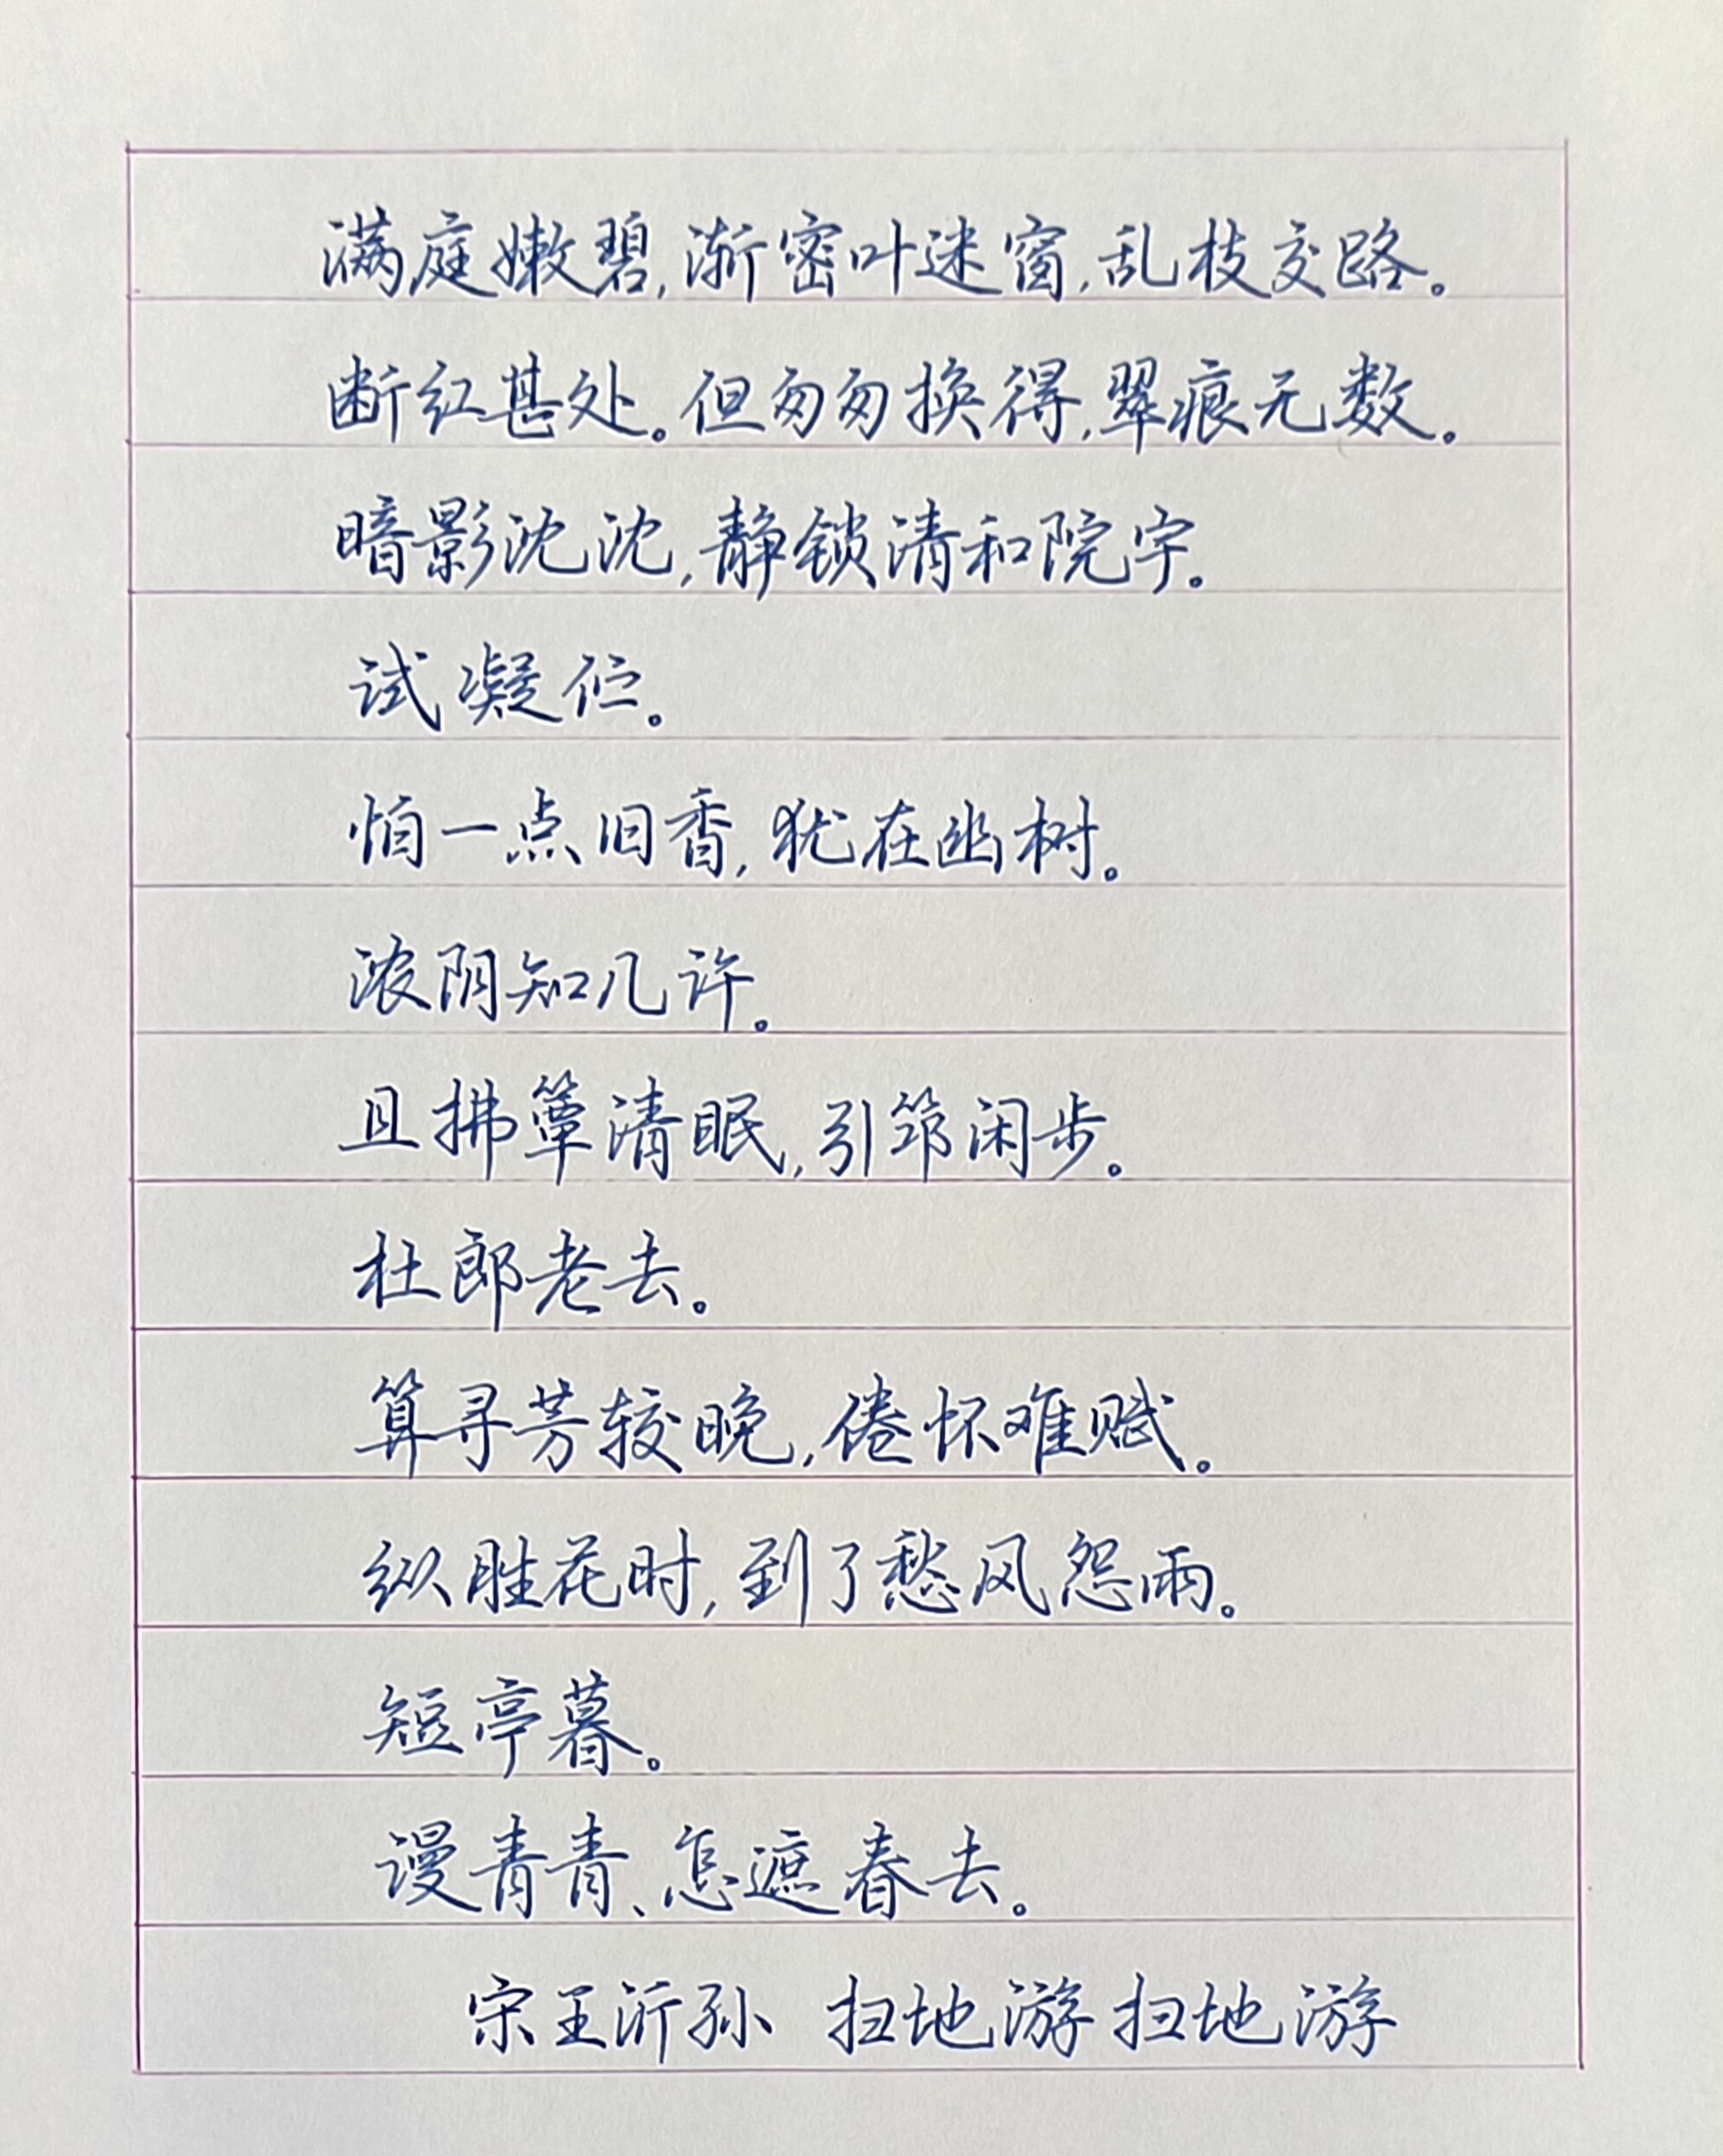 满庭嫩碧,渐密叶迷窗,乱枝交路。
断红甚处。但匆匆换得,翠痕无数。
暗影沈沈,静锁清和院宇。
试凝伫。
怕一点旧香,犹在幽树。
浓阴知几许。
且拂簟清眠,引筇闲步。
杜郎老去。
算寻芳较晚,倦怀难赋。
纵胜花时,到了愁风怨雨。
短亭暮。
谩青青、怎遮春去。
宋王沂孙 扫地游扫地游